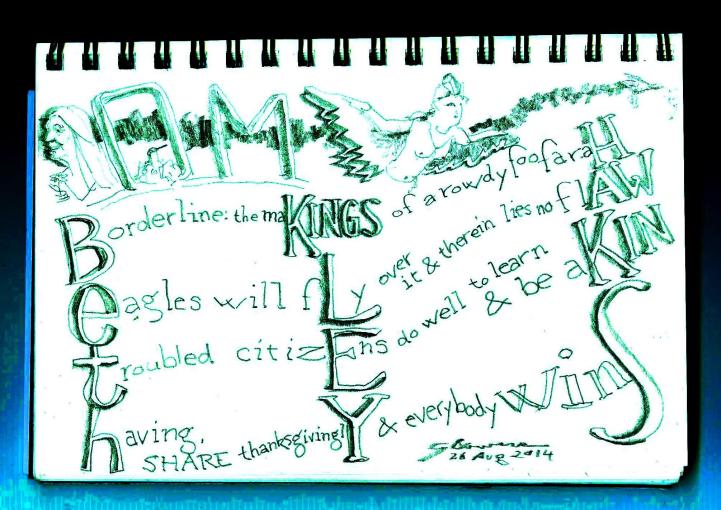 OM
Borderline: the maKINGS of a rowdy foofaraH
eagles will fLy over it & therein lies no flAW
troubled citizEns do well to learn & be aKIN
having, SHARE thanksgiving! Y & everybody WinS
26 Aug 2014